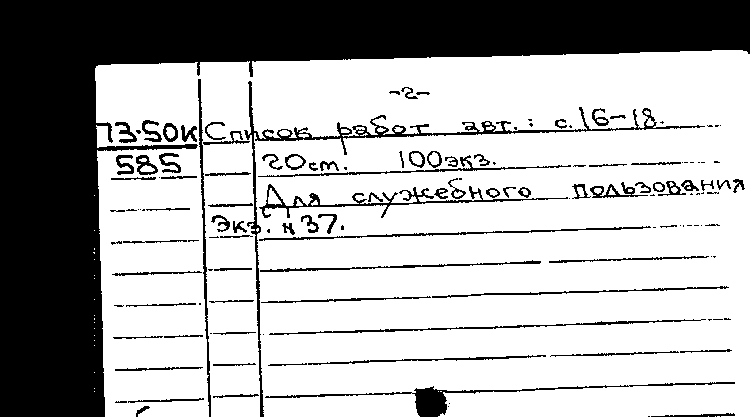 -2-
73-50К Список работ авт.: с.16-18.
585 20см. 100экз.
Для служебного пользования
Экз. N 37.